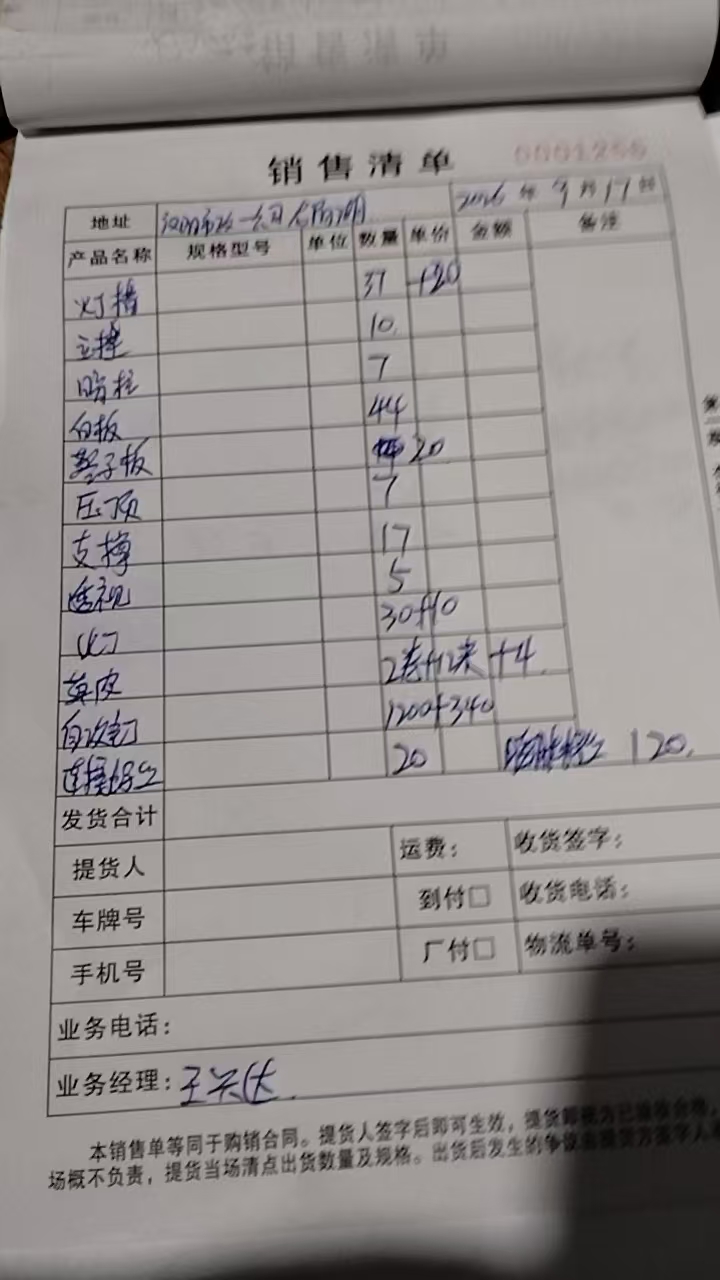 销售清单 0001266
地址 汉阳市政一公司 2026年9月17日
产品名称 规格型号 单位 数量 单价 金额 备注
灯槽 37 +20
立撑 10
暗柱 7
白板 44
垫子板 20
压顶 7
支撑 17
透视 5
灯 30+10
草皮 2卷+12米 +4
自攻钉 1200+340
连接螺丝 20 膨胀螺丝 120
发货合计
提货人 运费： 收货签字：
车牌号 到付□ 收货电话：
手机号 厂付□ 物流单号：
业务电话：
业务经理：王兴达
本销售单等同于购销合同。提货人签字后即可生效，提货即视为已验收合格，
场概不负责，提货当场清点出货数量及规格。出货后发生的争议由提货方签字人